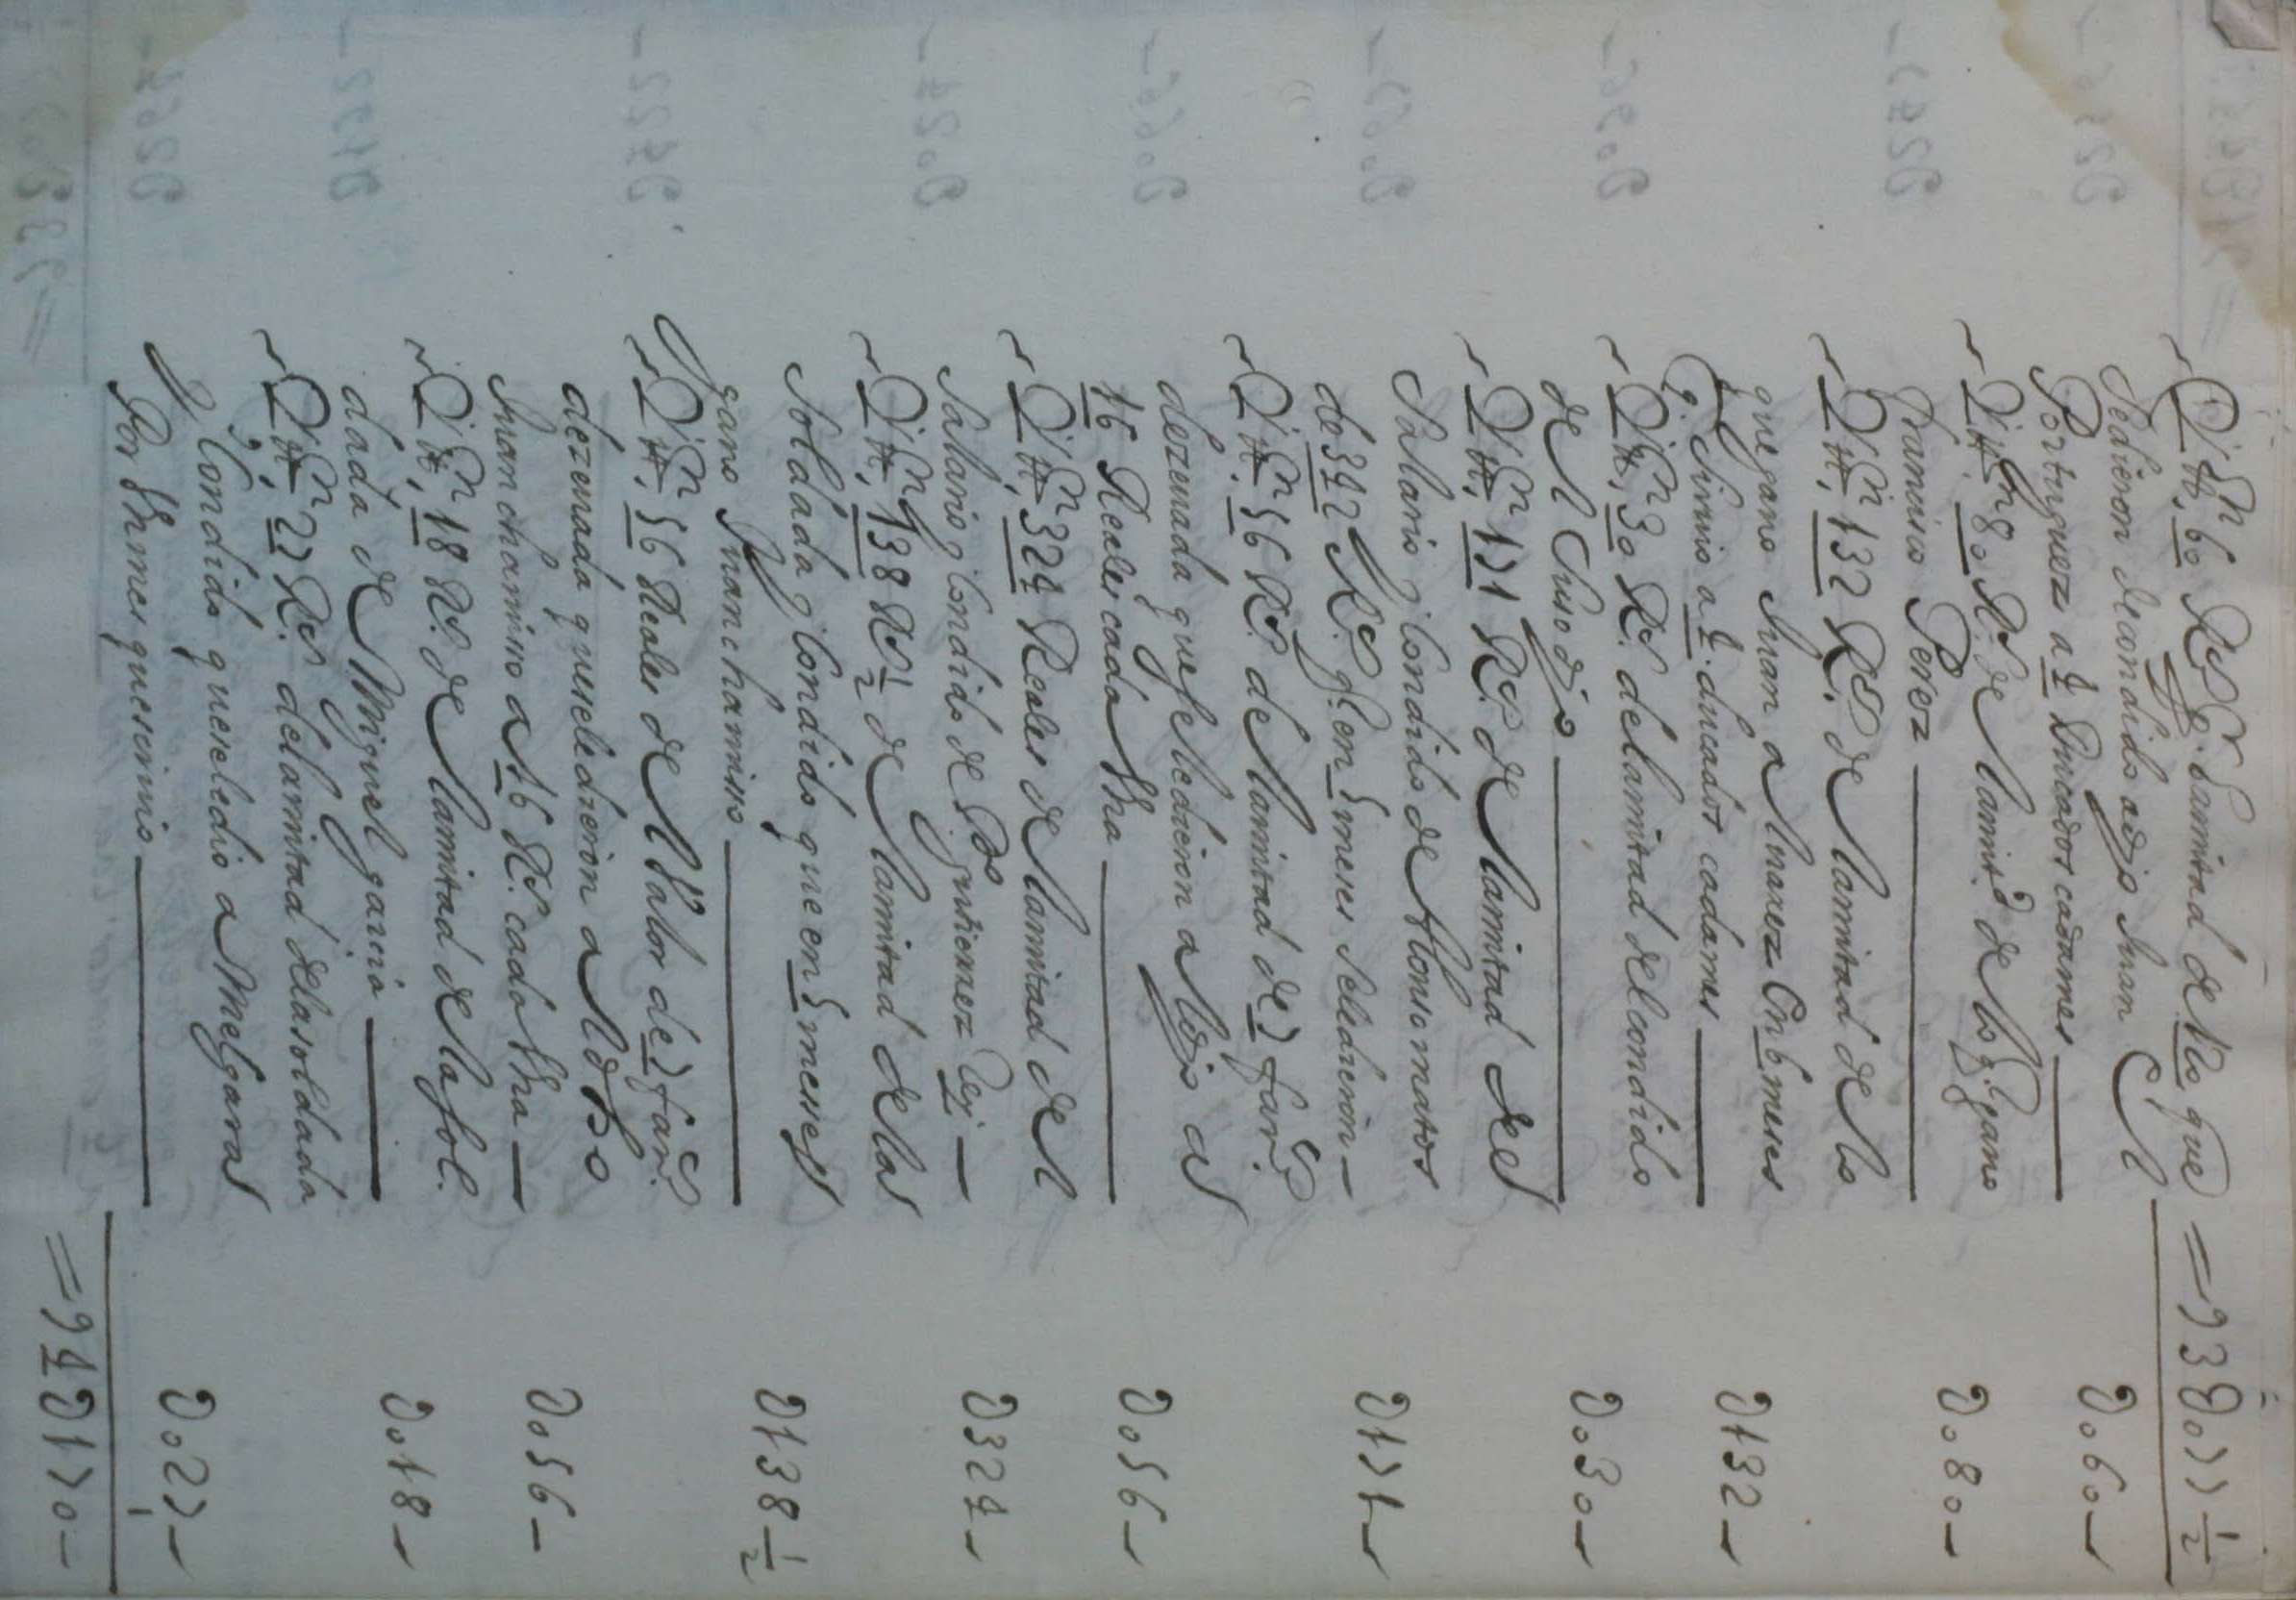 60 R.s lamitad de 120 que = 938077 1/2
sedieron de condido adjo Juan el
Portuguez a 4 Ducados cadames 0060
80 R.s de lamit.d de lo q. gano
Francisco Perez 0080
132 R.s de lamitad de lo
que gano Juan alvarez en 6 meses
q. sirvio a 4 ducados cadames 0132
30 R.s de lamitad del condido
del suso djo 0030
171 R.s de lamitad del
Salario y Condido de Alonso matos
de 342 R.s q. en 5 meses seledieron 0171
56 R.s de lamitad de 7 fan.s
de zevada que seledieron aldjo as
16 Reales cada fha 0056
324 Reales de lamitad del
Salario y Condido de P.o gutierrez 0324
138 R.s 1/2 de lamitad delas
soldada y Condido que en 5 messes
gano Juanchamisso 0138 1/2
56 Reales del Valor de 7 fan.s
de zevada que seledieron aldho
Juanchamisso a 16 R.s cada fha 0056
18 R.s de lamitad de lasol.
dada de Miguel garcia 0018
27 R.s delamitad delasoldada
y Condido que seledio a Melgaras
Por vn mes que sirvio 0027
= 940170